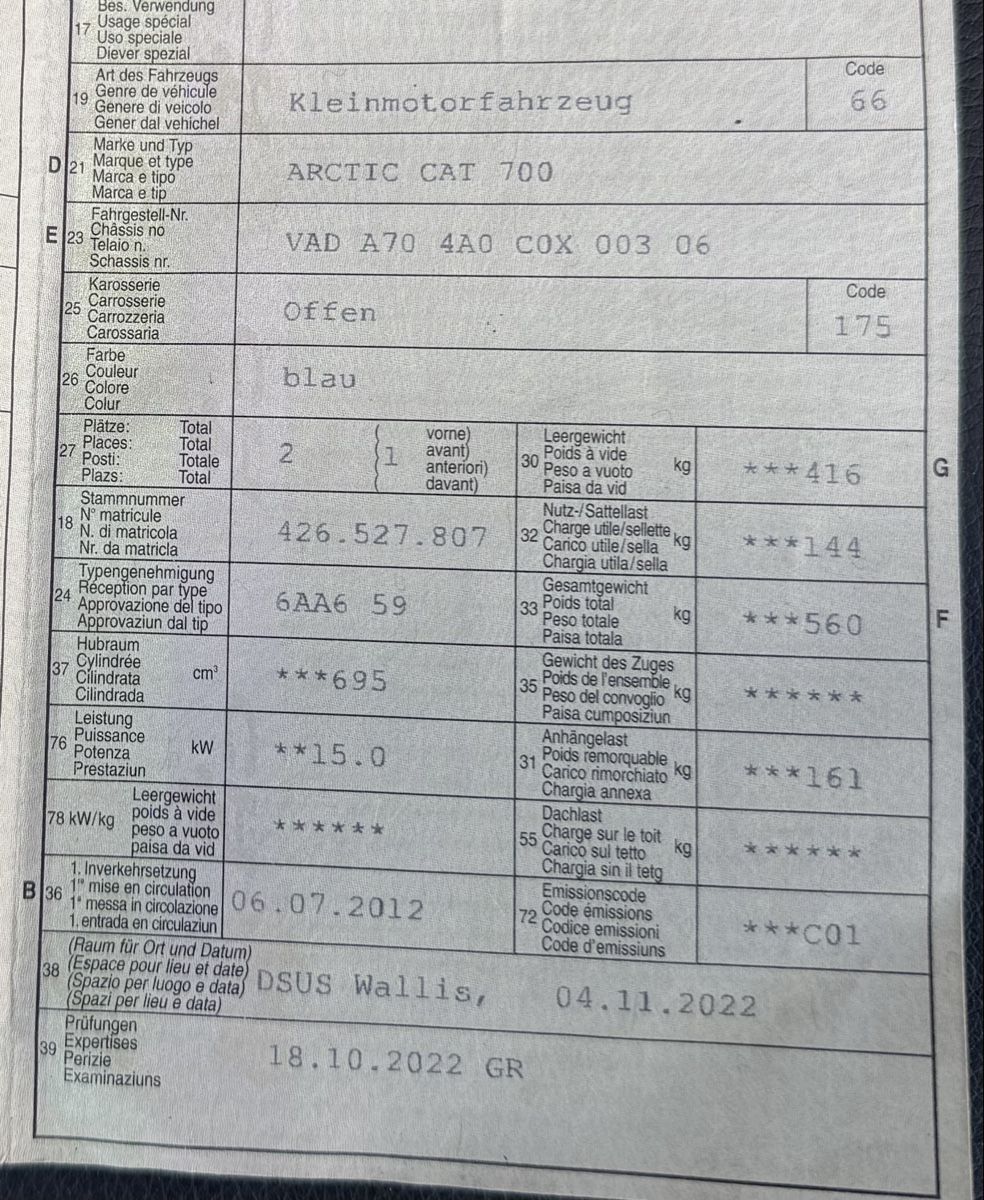 Bes. Verwendung
17 Usage spécial
Uso speciale
Diever spezial
Art des Fahrzeugs
19 Genre de véhicule
Genere di veicolo
Gener dal vehichel
Kleinmotorfahrzeug
Code
66
Marke und Typ
D 21 Marque et type
Marca e tipo
Marca e tip
ARCTIC CAT 700
Fahrgestell-Nr.
E 23 Châssis no
Telaio n.
Schassis nr.
VAD A70 4A0 C0X 003 06
Karosserie
25 Carrosserie
Carrozzeria
Carossaria
Offen
Code
175
Farbe
26 Couleur
Colore
Colur
blau
Plätze: Total
27 Places: Total
Posti: Totale
Plazs: Total
2
( 1 vorne)
avant)
anteriori)
davant)
Leergewicht
30 Poids à vide kg
Peso a vuoto
Paisa da vid
***416
G
Stammnummer
18 N° matricule
N. di matricola
Nr. da matricla
426.527.807
Nutz-/Sattellast
32 Charge utile/sellette kg
Carico utile/sella
Chargia utila/sella
***144
Typengenehmigung
24 Réception par type
Approvazione del tipo
Approvaziun dal tip
6AA6 59
Gesamtgewicht
33 Poids total kg
Peso totale
Paisa totala
***560
F
Hubraum
37 Cylindrée cm³
Cilindrata
Cilindrada
***695
Gewicht des Zuges
35 Poids de l'ensemble kg
Peso del convoglio
Paisa cumposiziun
******
Leistung
76 Puissance kW
Potenza
Prestaziun
**15.0
Anhängelast
31 Poids remorquable kg
Carico rimorchiato
Chargia annexa
***161
Leergewicht
78 kW/kg poids à vide
peso a vuoto
paisa da vid
******
Dachlast
55 Charge sur le toit kg
Carico sul tetto
Chargia sin il tetg
******
1. Inverkehrsetzung
B 36 1re mise en circulation
1a messa in circolazione
1. entrada en circulaziun
06.07.2012
Emissionscode
72 Code émissions
Codice emissioni
Code d'emissiuns
***C01
(Raum für Ort und Datum)
38 (Espace pour lieu et date)
(Spazio per luogo e data)
(Spazi per lieu e data)
DSUS Wallis, 04.11.2022
Prüfungen
39 Expertises
Perizie
Examinaziuns
18.10.2022 GR